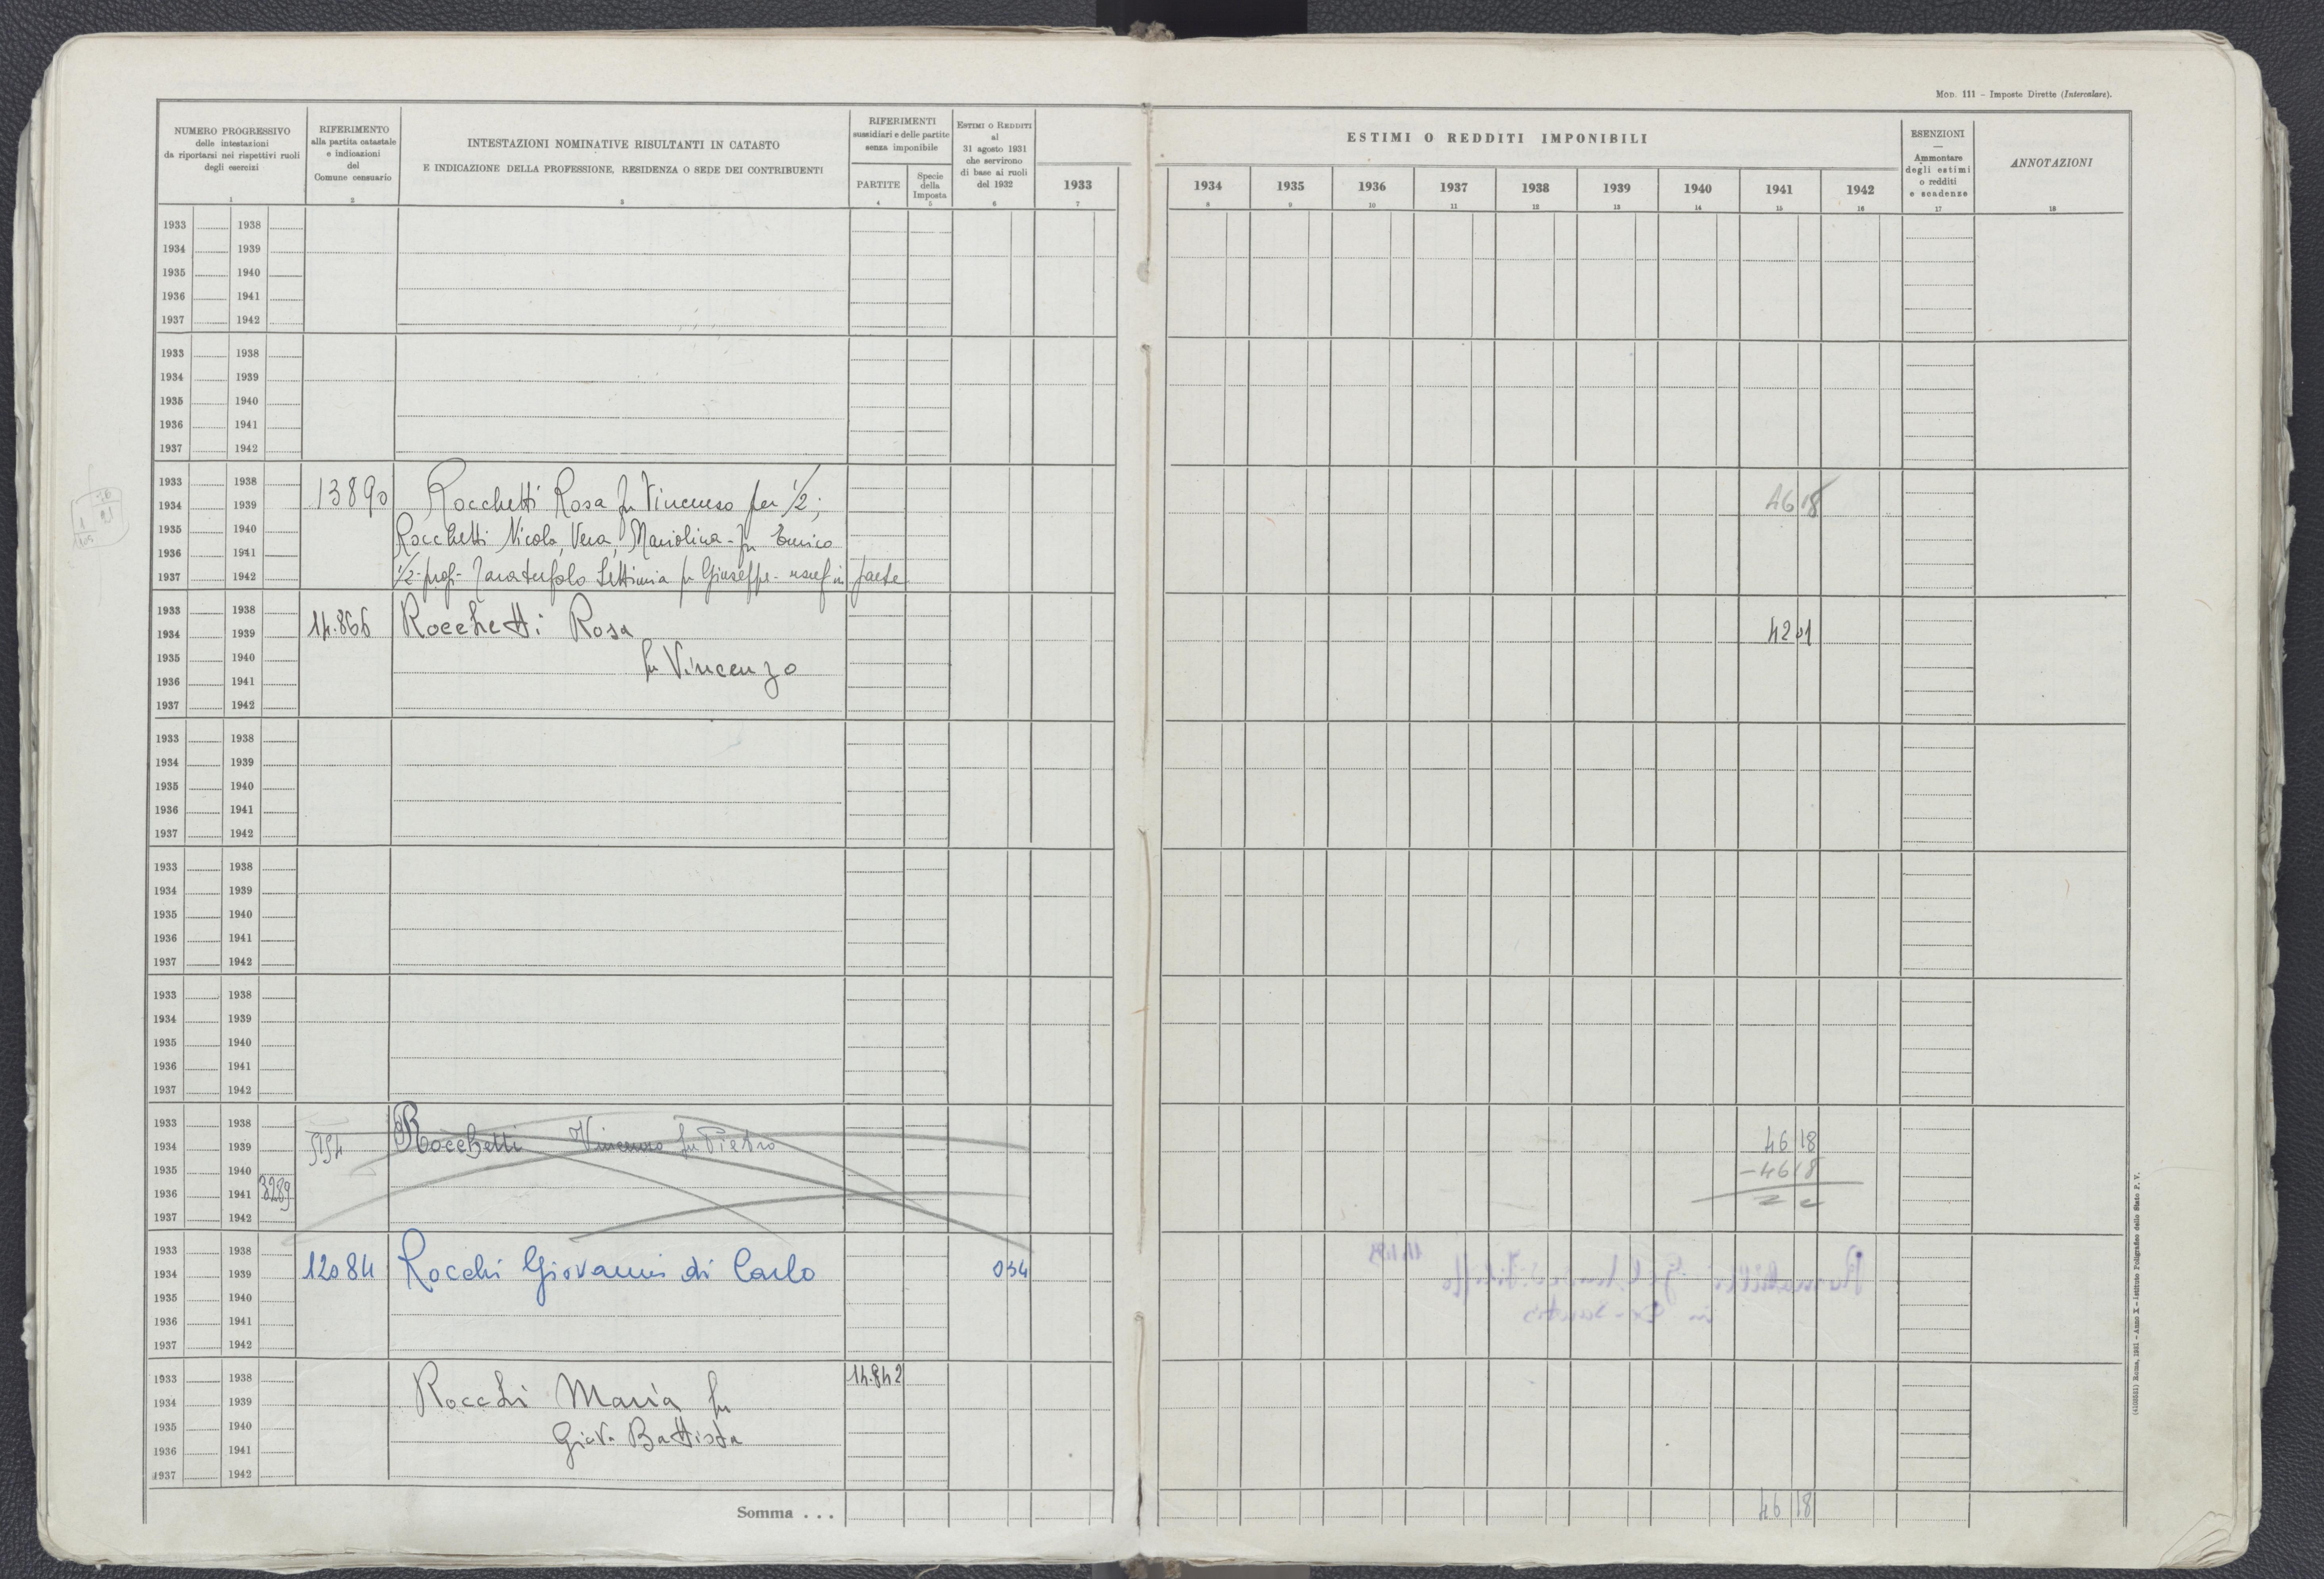 Mod. 111 - Imposte Dirette (Intercalare).
NUMERO PROGRESSIVO
delle intestazioni
da riportarsi nei rispettivi ruoli
degli esercizi
1
RIFERIMENTO
alla partita catastale
e indicazioni
del
Comune censuario
2
INTESTAZIONI NOMINATIVE RISULTANTI IN CATASTO
E INDICAZIONE DELLA PROFESSIONE, RESIDENZA O SEDE DEI CONTRIBUENTI
3
RIFERIMENTI
sussidiari e delle partite
senza imponibile
PARTITE
4
Specie
della
Imposta
5
Estimi o Redditi
al
31 agosto 1931
che servirono
di base ai ruoli
del 1932
6
1933
7
ESTIMI O REDDITI IMPONIBILI
1934 1935 1936 1937 1938 1939 1940 1941 1942
8 9 10 11 12 13 14 15 16
ESENZIONI
Ammontare
degli estimi
o redditi
e scadenze
17
ANNOTAZIONI
18
1933 1938
1934 1939
1935 1940
1936 1941
1937 1942
1933 1938
1934 1939
1935 1940
1936 1941
1937 1942
1933 1938
1934 1939
1935 1940
1936 1941
1937 1942
13890 Rocchetti Rosa fu Vincenzo per 1/2; 46 18
Rocchetti Nicola, Vera, Mariolina - fu Enrico
1/2 - prop - Zaratufolo Settimia fu Giuseppe - usuf in parte
1933 1938
1934 1939
1935 1940
1936 1941
1937 1942
14.866 Rocchetti Rosa 42 01
fu Vincenzo
1933 1938
1934 1939
1935 1940
1936 1941
1937 1942
1933 1938
1934 1939
1935 1940
1936 1941
1937 1942
1933 1938
1934 1939
1935 1940
1936 1941
1937 1942
1933 1938
1934 1939
1935 1940
1936 1941 3239
1937 1942
5154 Rocchetti Vincenzo fu Pietro 46 18
- 46 18
1933 1938
1934 1939
1935 1940
1936 1941
1937 1942
12084 Rocchi Giovanni di Carlo 034
1933 1938
1934 1939
1935 1940
1936 1941
1937 1942
Rocchi Maria fu 14.842
Giov. Battista
Somma . . . 46 18
(4103551) Roma, 1931 - Anno X - Istituto Poligrafico dello Stato P. V.